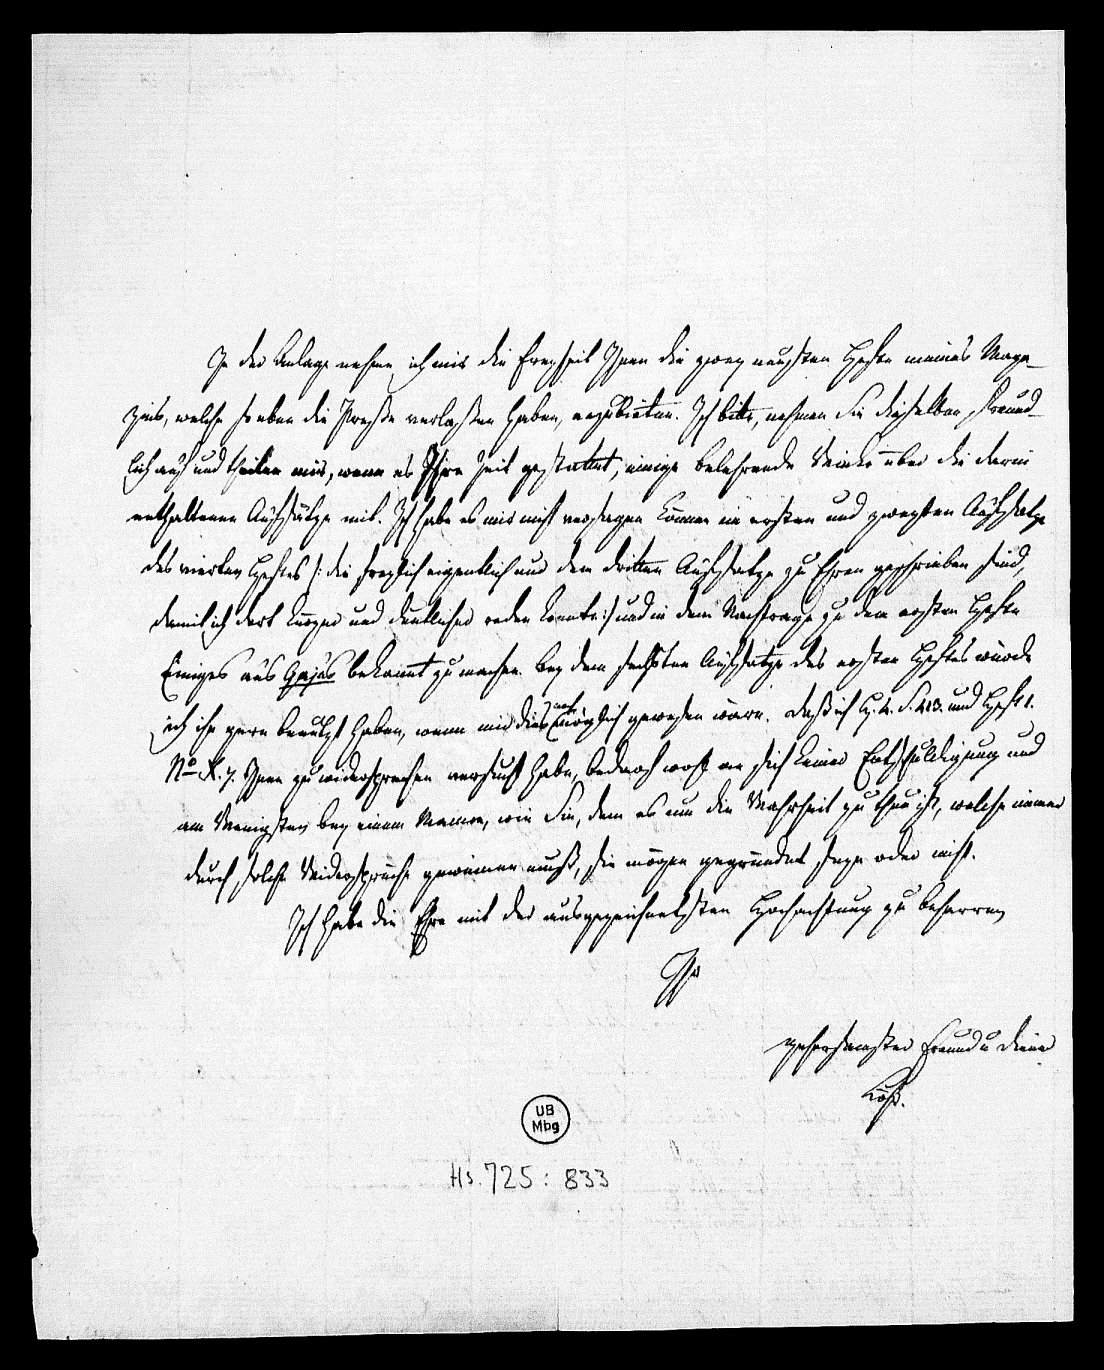 In der Anlage nehme ich mir die Freyheit Ihnen die zwey neusten Hefte meines Maga-
zins, welche so eben die Preße verlaßen haben, anzubieten. Ich bitte, nehmen Sie dieselben freund-
lich auf und theilen mir, wenn es Ihre Zeit gestattet, einige belehrende Winke über die darin
enthaltenen Aufsätze mit. Ich habe es mir nicht versagen können im ersten und zweyten Aufsatze
des vierten Heftes /: die freylich eigentlich nur dem dritten Aufsatze zu Ehren geschrieben sind,
damit ich dort kürzer und deutlicher reden konnte :/ und in dem Nachtrage zu dem ersten Hefte
Einiges aus Gajus bekannt zu machen. Bey dem sechsten Aufsatze des ersten Heftes würde
ich ihn gern benutzt haben, wenn mir dies noch möglich gewesen wäre. Daß ich H. 4. S. 413. und Heft 1.
No X. 7. Ihnen zu widersprechen versucht habe, bedarf wohl an sich keiner Entschuldigung und
am Wenigsten bey einem Manne, wie Sie, dem es um die Wahrheit zu thun ist, welche immer
durch solche Widersprüche gewinnen muß, sie mögen gegründet seyn oder nicht.
Ich habe die Ehre mit der ausgezeichnetsten Hochachtung zu beharren
Ihr
gehorsamster Freund u Diener
UB
Mbg
Hs. 725: 833